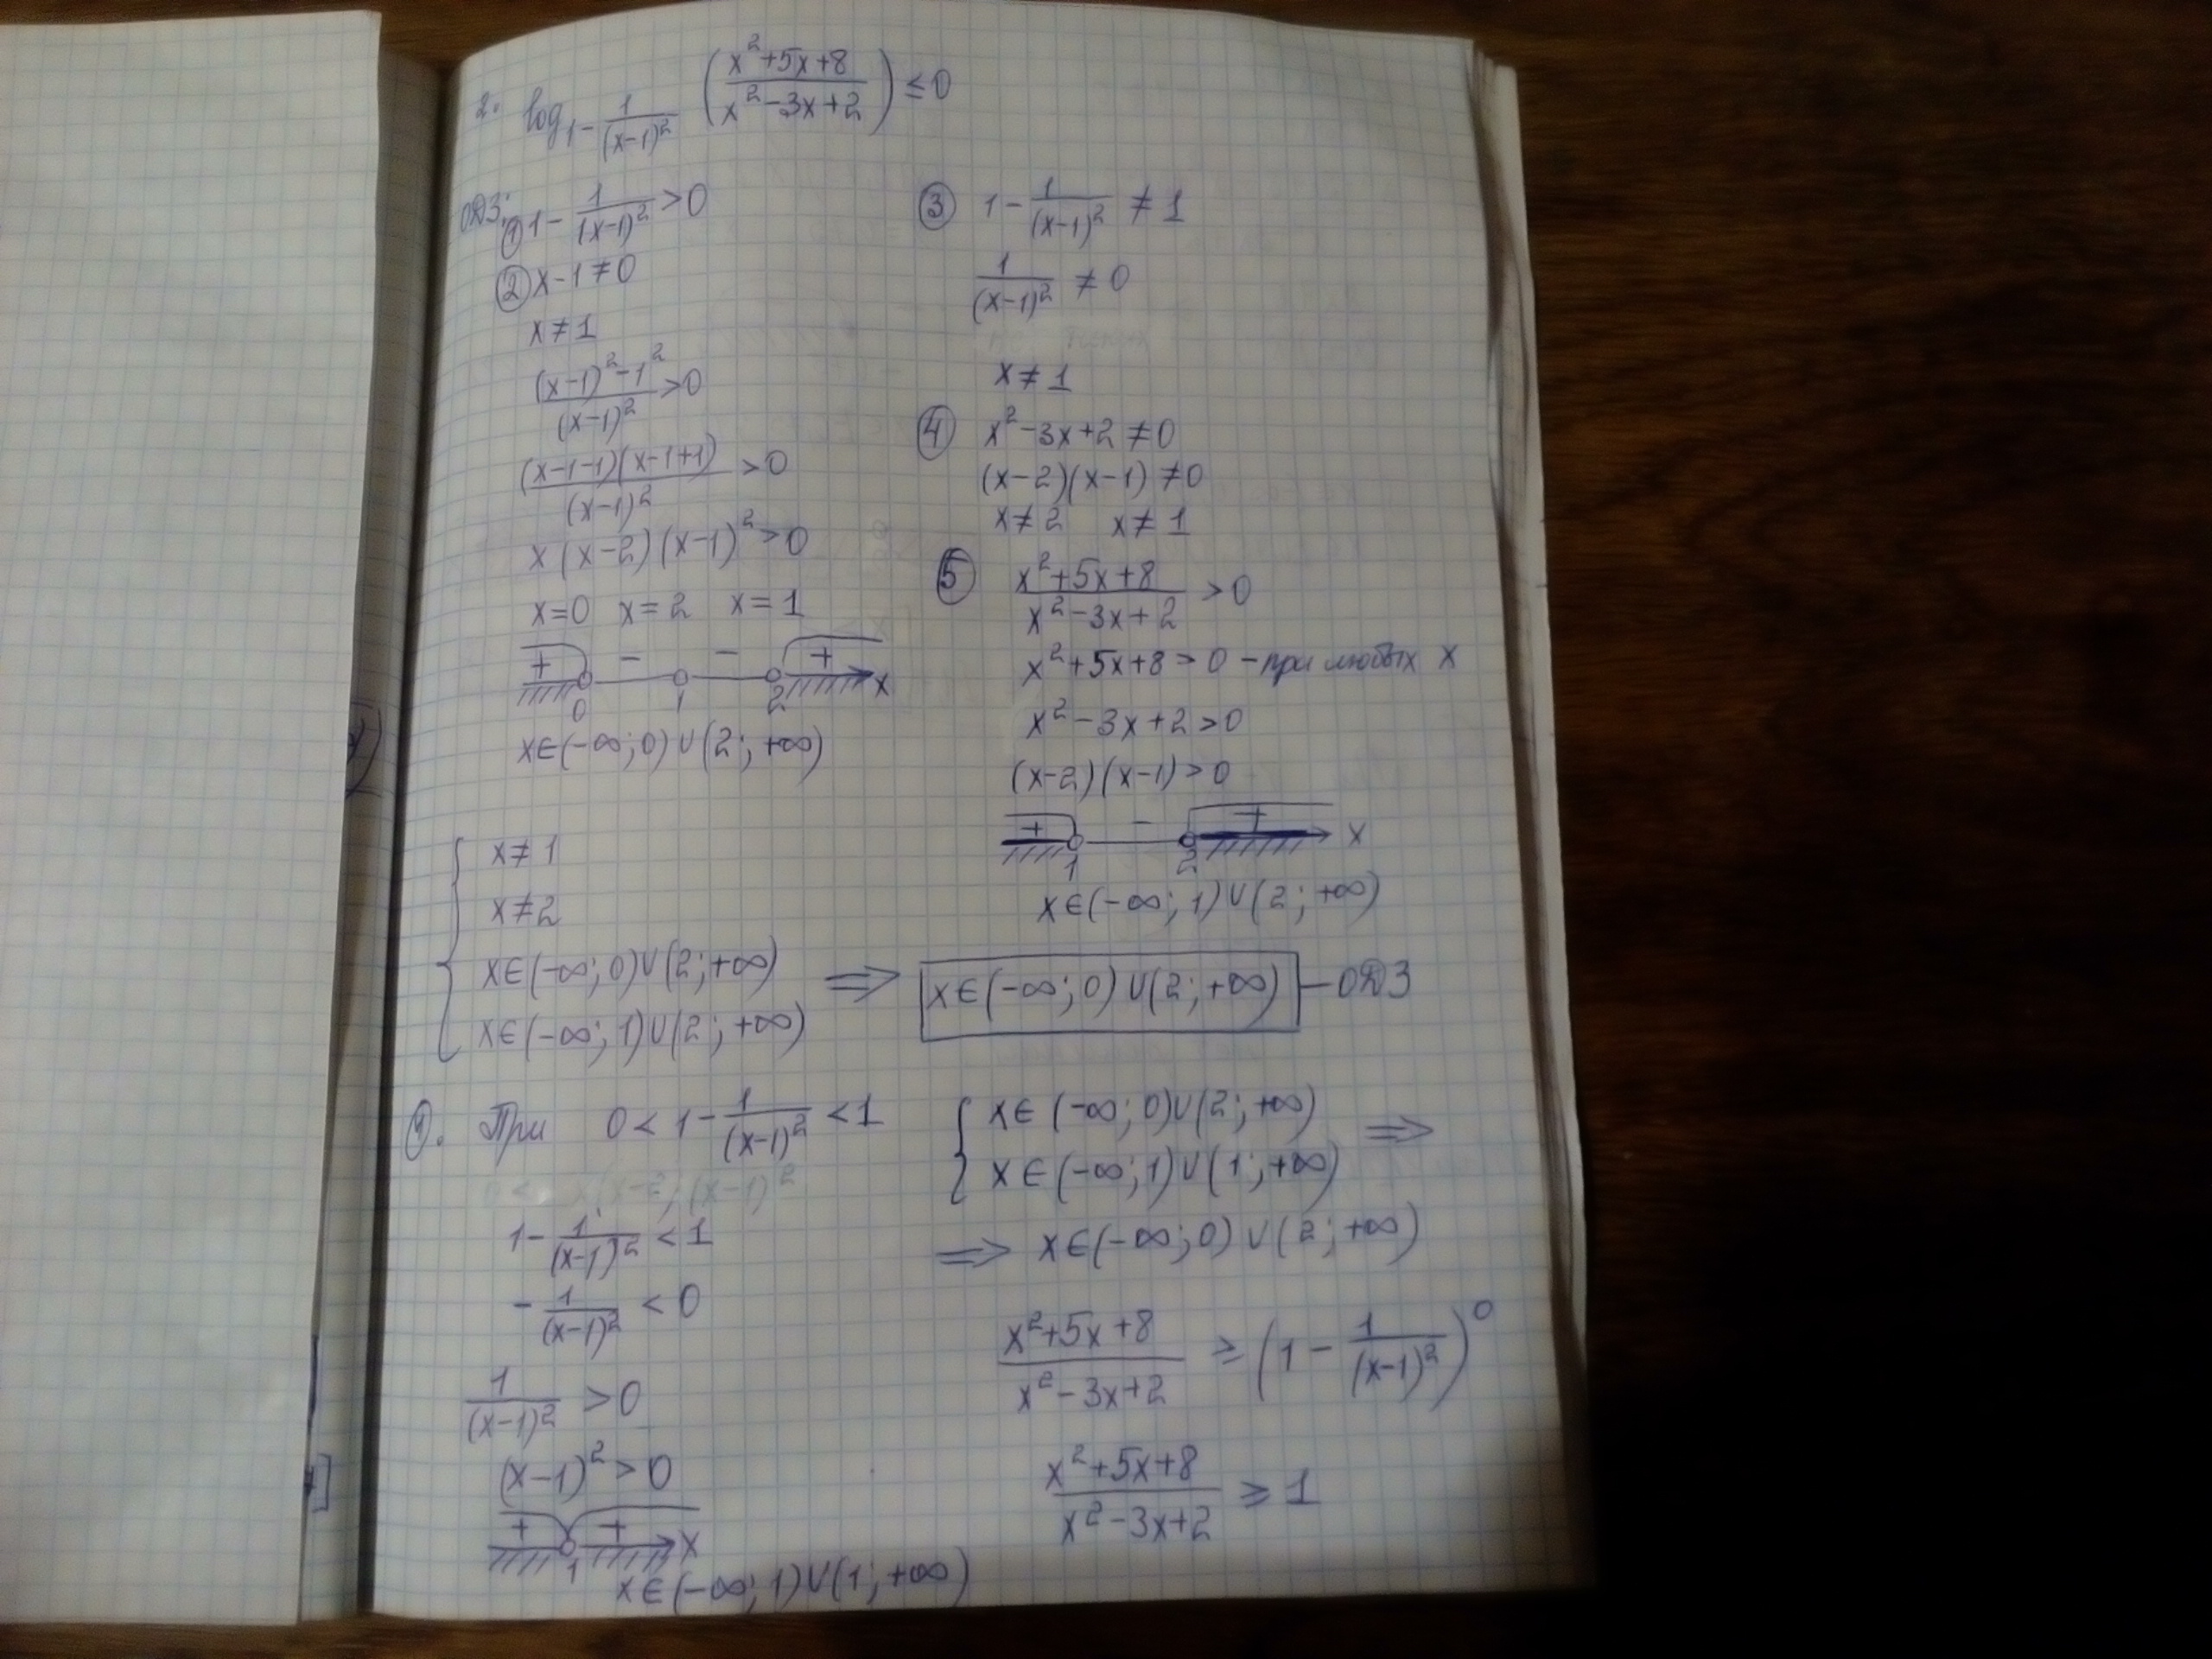 2. log_{1 - 1/(x-1)²} ( (x²+5x+8)/(x²-3x+2) ) ≤ 0
ОДЗ:
① 1 - 1/(x-1)² > 0
② x-1 ≠ 0
x ≠ 1
((x-1)² - 1²)/(x-1)² > 0
((x-1-1)(x-1+1))/(x-1)² > 0
x(x-2)(x-1)² > 0
x=0 x=2 x=1
+ - - + 0 1 2 x
x∈(-∞; 0)∪(2; +∞)
③ 1 - 1/(x-1)² ≠ 1
1/(x-1)² ≠ 0
x ≠ 1
④ x²-3x+2 ≠ 0
(x-2)(x-1) ≠ 0
x ≠ 2 x ≠ 1
⑤ (x²+5x+8)/(x²-3x+2) > 0
x²+5x+8 > 0 - при любых x
x²-3x+2 > 0
(x-2)(x-1) > 0
+ - + 1 2 x
x∈(-∞; 1)∪(2; +∞)
{ x ≠ 1
x ≠ 2
x∈(-∞; 0)∪(2; +∞)
x∈(-∞; 1)∪(2; +∞)
⟹ x∈(-∞; 0)∪(2; +∞) - ОДЗ
①. При 0 < 1 - 1/(x-1)² < 1
1 - 1/(x-1)² < 1
- 1/(x-1)² < 0
1/(x-1)² > 0
(x-1)² > 0
+ + 1 x
x∈(-∞; 1)∪(1; +∞)
{ x∈(-∞; 0)∪(2; +∞)
x∈(-∞; 1)∪(1; +∞) ⟹
⟹ x∈(-∞; 0)∪(2; +∞)
(x²+5x+8)/(x²-3x+2) ≥ (1 - 1/(x-1)²)⁰
(x²+5x+8)/(x²-3x+2) ≥ 1